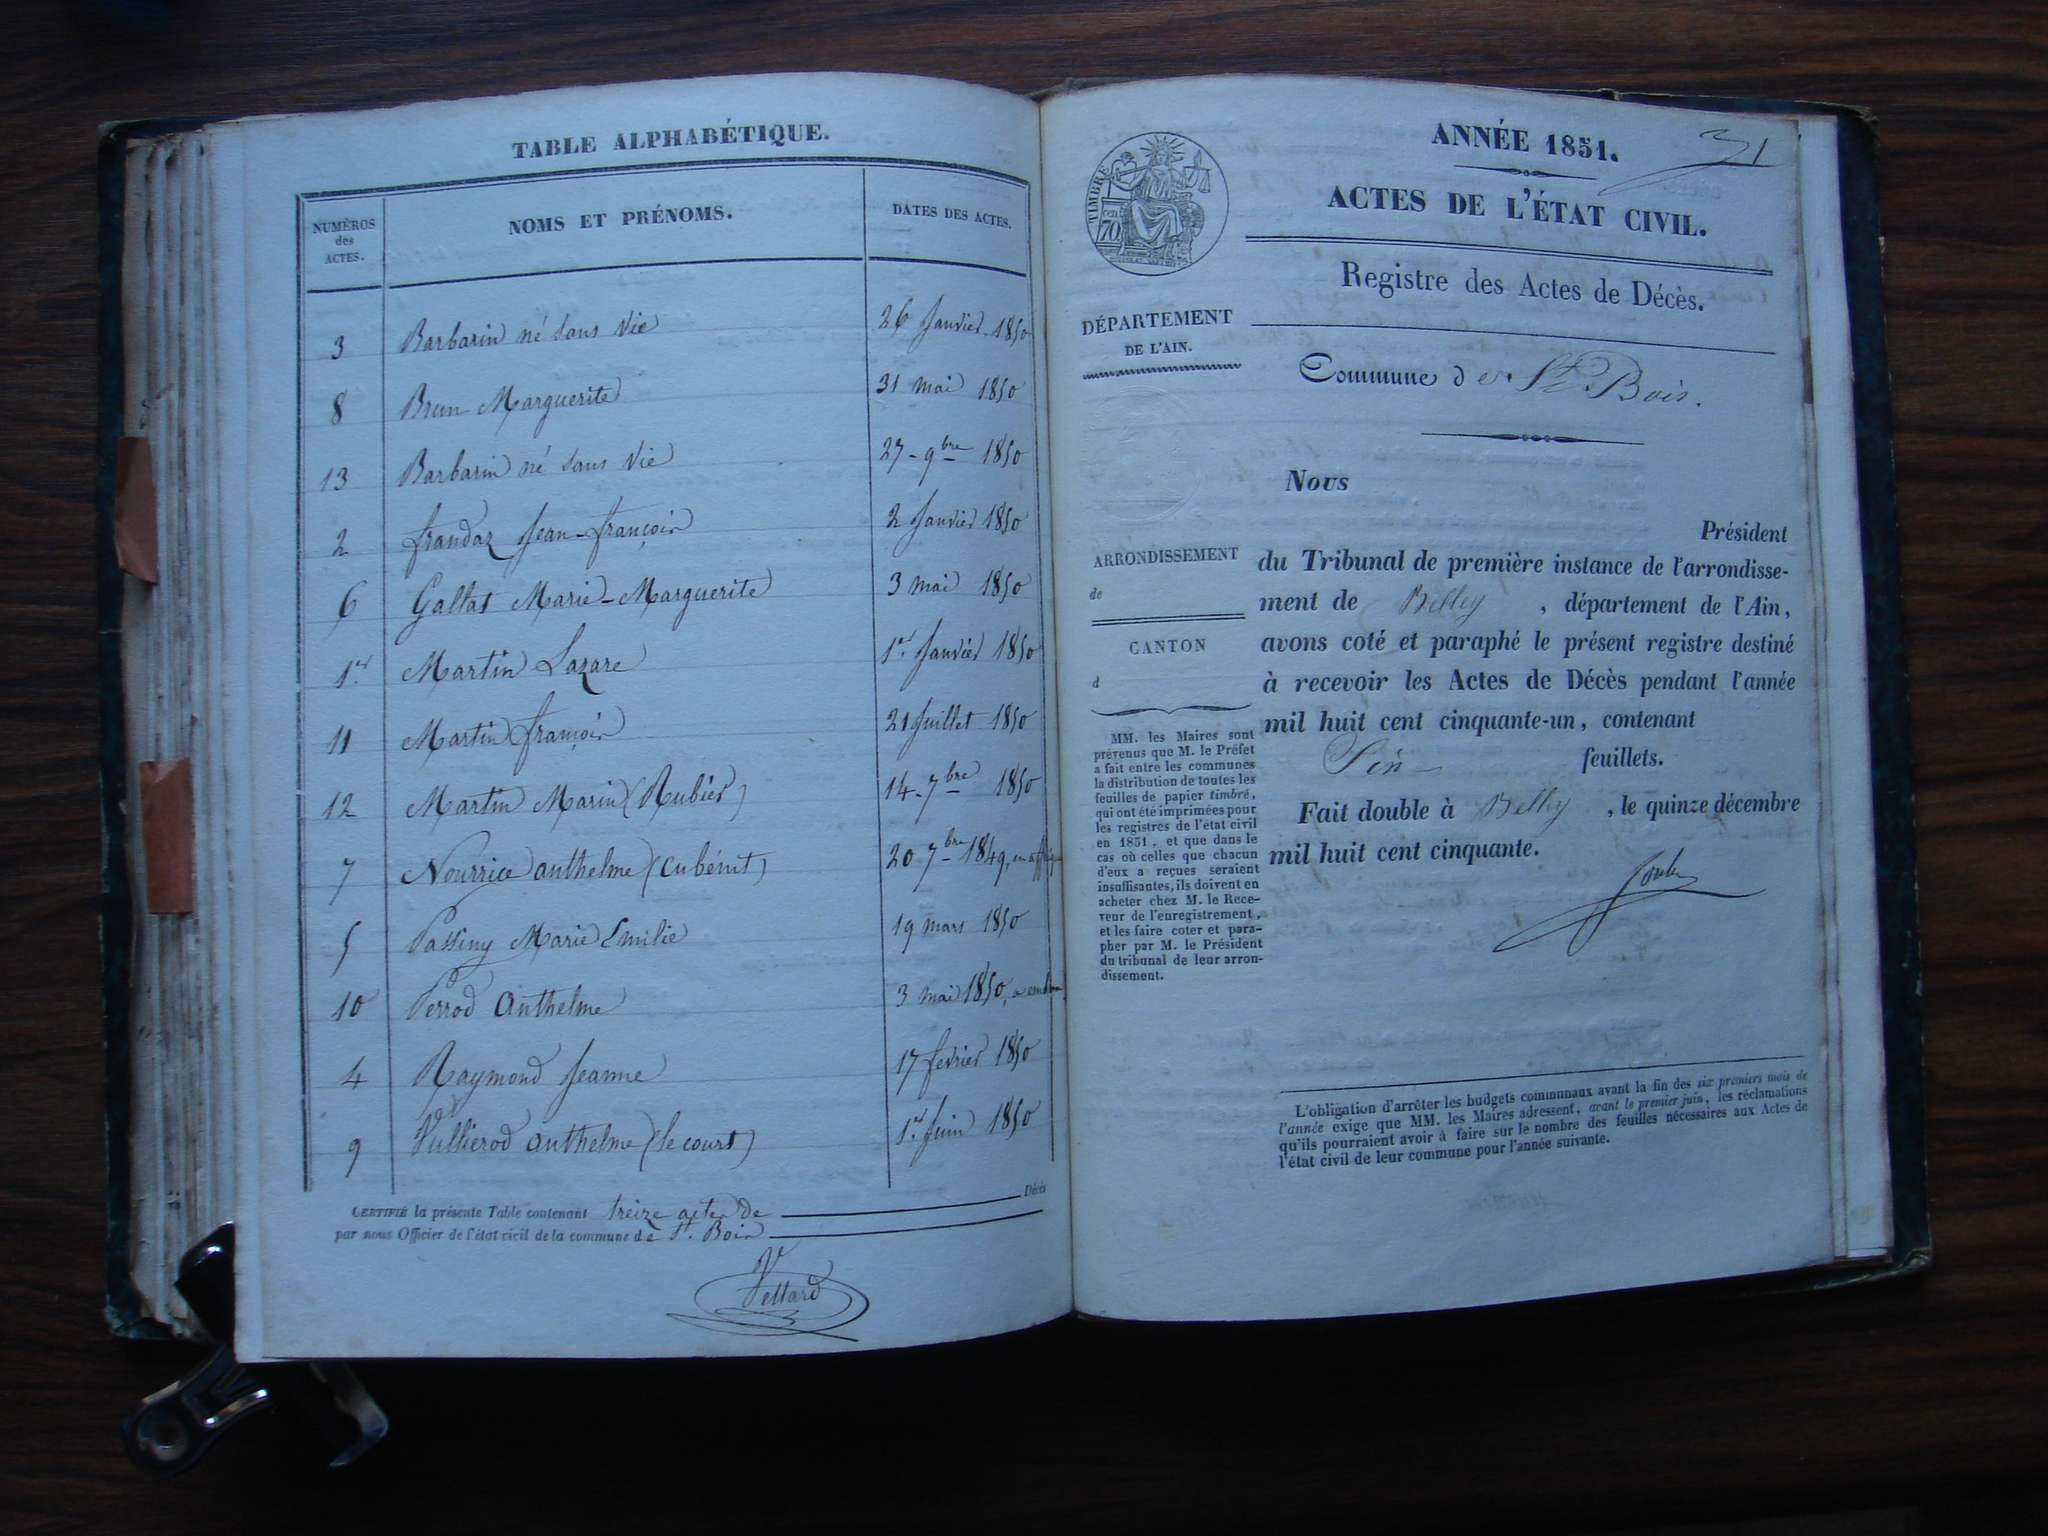 TABLE ALPHABÉTIQUE.
NUMÉROS des ACTES. NOMS ET PRÉNOMS. DATES DES ACTES.
3 Barbarin né sans vie 26 Janvier 1850
8 Brun Marguerite 31 mai 1850
13 Barbarin né sans vie 27 9bre 1850
2 frandaz Jean-françois 2 Janvier 1850
6 Gallat Marie-Marguerite 3 mai 1850
1er Martin Lazare 1er Janvier 1850
11 Martin françois 21 Juillet 1850
12 Martin Marin (Rubier) 14 7bre 1850
7 Nourrice anthelme (Cubénit) 20 7bre 1849,
5 Passiny Marie Emilie 19 mars 1850
10 Perrod Anthelme 3 mai 1850,
4 Raymond Jeanne 17 fevrier 1850
9 Vullierod anthelme (le court) 1er Juin 1850
CERTIFIÉ la présente Table contenant treize actes de Décès
par nous Officier de l'état civil de la commune de St. Bois
Vettard
31
ANNÉE 1851.
ACTES DE L'ÉTAT CIVIL.
Registre des Actes de Décès.
TIMBRE
cen. 70
DÉPARTEMENT
DE L'AIN.
Commune de St. Bois.
ARRONDISSEMENT
de
CANTON
d
MM. les Maires sont
prévenus que M. le Préfet
a fait entre les communes
la distribution de toutes les
feuilles de papier timbré,
qui ont été imprimées pour
les registres de l'état civil
en 1851, et que dans le
cas où celles que chacun
d'eux a reçues seraient
insuffisantes, ils doivent en
acheter chez M. le Rece-
veur de l'enregistrement,
et les faire coter et para-
pher par M. le Président
du tribunal de leur arron-
dissement.
Nous
Président
du Tribunal de première instance de l'arrondisse-
ment de Belley, département de l'Ain,
avons coté et paraphé le présent registre destiné
à recevoir les Actes de Décès pendant l'année
mil huit cent cinquante-un, contenant
feuillets.
Fait double à Belley, le quinze décembre
mil huit cent cinquante.
L'obligation d'arrêter les budgets communaux avant la fin des six premiers mois de
l'année exige que MM. les Maires adressent, avant le premier juin, les réclamations
qu'ils pourraient avoir à faire sur le nombre des feuilles nécessaires aux Actes de
l'état civil de leur commune pour l'année suivante.